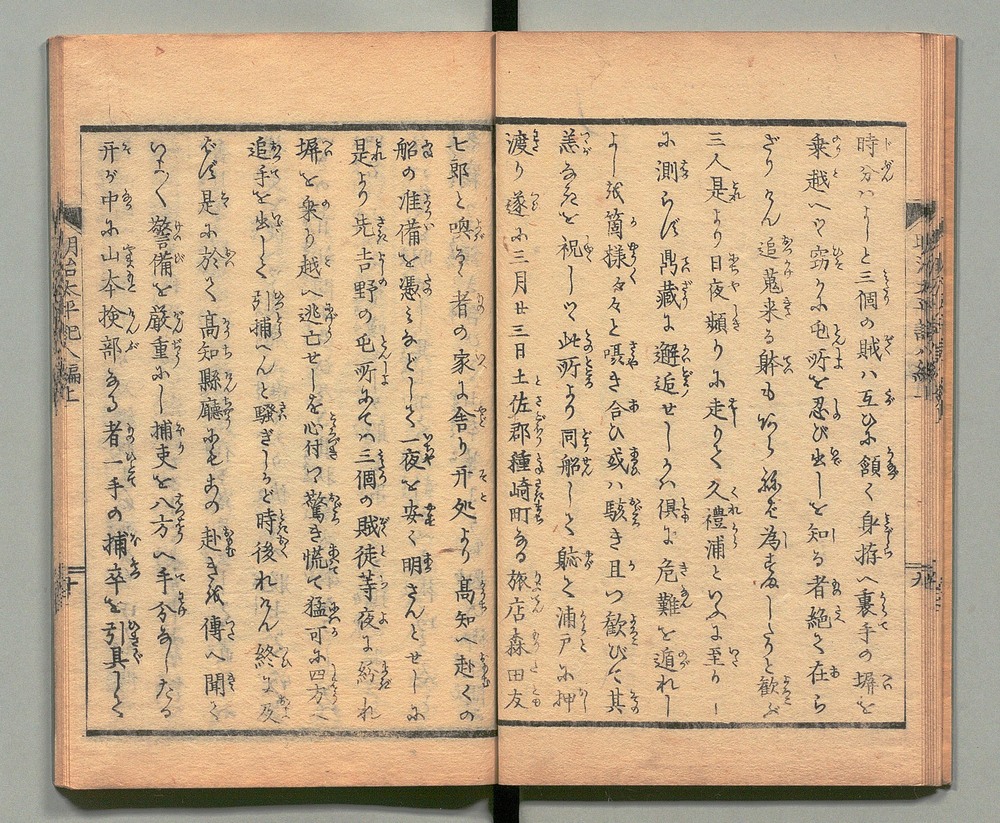 時分ハよしと三個の賊ハ互ひに領く身拵へ裏手の塀を
乗越へツ窃かに屯所を忍び出しを知る者絶て在ら
ざりけん追蒐来る躰も
三人是より日夜頻りに走りて久禮浦といふに至りし
に測らず鼎藏に邂逅せしかバ倶に危難を遁れし
よしを箇様々々と囁き合ひ或ハ駭き且つ歓びて其
恙なきを祝しツ此所より同船して䠶と浦戸に押
渡り遂に三月廿三日土佐郡種崎町なる旅店森田友
七郎と喚る者の家に舎り开処より高知へ赴くの
船の准備を憑みなどして一夜を安く明さんとせしに
是より先吉野の屯所にてハ三個の賊徒等夜に紛れ
塀を乗り越へ逃亡せしを心付て驚き慌て猛可に四方へ
追手を出して引捕へんと騒ぎしかど時後れけん終に及
ばず是に於て高知縣廳にも右の赴きを傳へ聞て
いよく警備を厳重にし捕吏を八方へ手分なしたる
开が中に山本検部なる者一手の捕卒を引具して
明治太平記八編上
十
九